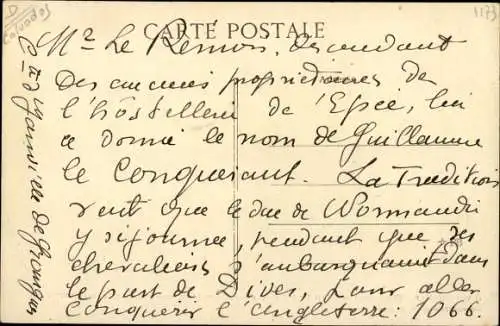 D
Calvados
1173
CARTE POSTALE
Mr Le Rémois, descendant
Des anciens propriétaires de
l'hôstellerie de l'Epée, lui
a donné le nom de Guillaume
le Conquérant. La Tradition
veut que le duc de Normandie
y séjourna, pendant que ses
chevaliers s'embarquaient dans
le port de Dives, pour aller
conquérir l'Angleterre: 1066.
de